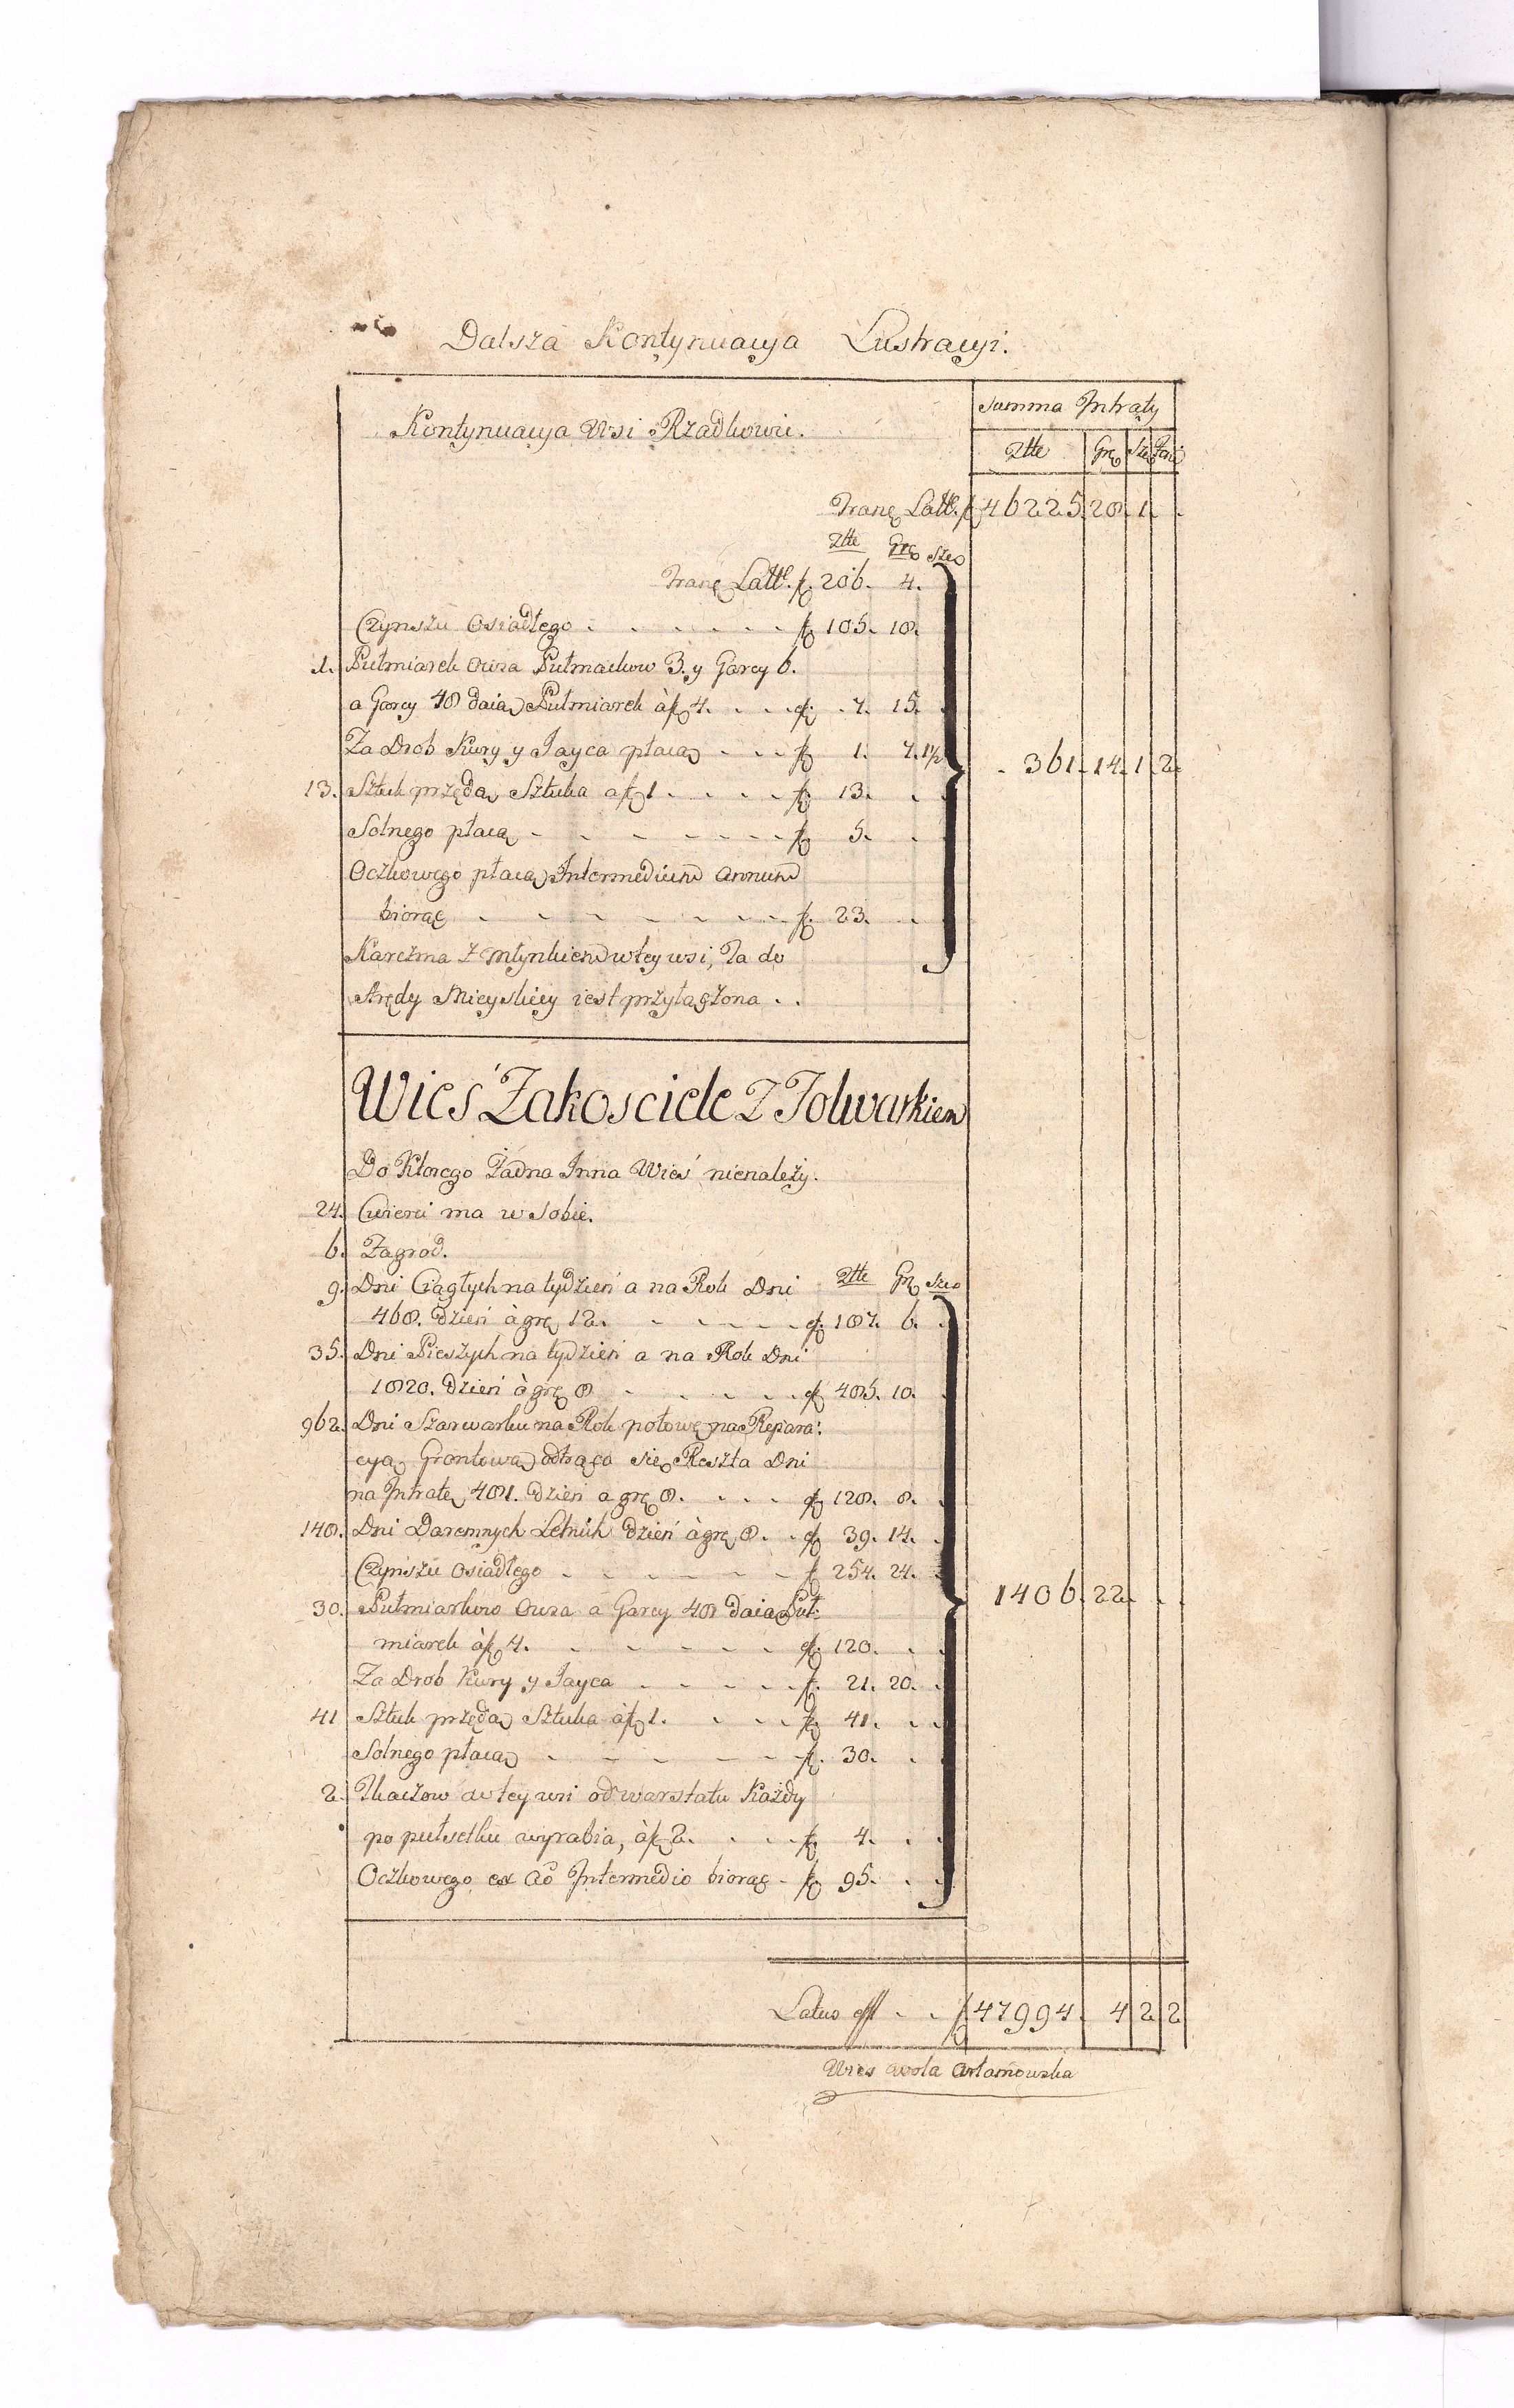 Dalsza Kontynuacya Lustracyi.
Summa Intraty
Kontynuacya Wsi Rzadkowi.
Złłe Grę Sze
Tranę Latt. f 46225. 28. 1.
Złłe Grę Sze
Tranę Latt. f. 206. 4.
Czynszu Osiadłego - - - - - f 105. 18.
1. Pułmiarek Owsa Pułmackow 3. y Garcy 6.
a Garcy 48 daią Pułmiarek à f 4. - - f. 7. 15.
Za Drob Kury y Jayca płacą - - - f 1. 7. 1½
361. 14. 1. 2.
13. Sztuk przędą Sztuka a f 1 - - - - f. 13.
Solnego płacą - - - - - - - f 5.
Oczkowego płacą Intermedium Annum
biorąc - - - - - - - f. 23.
Karczma z Młynkiem w tey wsi, Ta do
Arędy Mieyskiey iest przyłączona . .
Wieś Zakosciele Z Folwarkiem
Do Ktorego Żadna Inna Wieś nienależy.
24. Cwierci ma w Sobie.
6. Zagrod.
9. Dni Ciągłych na tydzień a na Rok Dni Złłe Gr Sze
468. dzień à grę 12. - - - - - f. 187. 6.
35. Dni Pieszych na tydzień a na Rok Dni
1820. dzień à grę 8 - - - - - f 485. 10.
962. Dni Szarwarku na Rok połowę na Repara:
cyą Grontową odtrąca się Reszta Dni
na Intratę 481. dzień a grę 8. - - - f 128. 8.
148. Dni Daremnych Letnich dzień à grę 8. - f 39. 14.
Czynszu Osiadłego - - - - - - f 254. 24.
1406. 22.
30. Pułmiarkow Owsa a Garcy 48 daią Puł:
miarek à f 4. - - - - - - f. 120.
Za Drob Kury y Jayca - - - - f. 21. 20.
41 Sztuk przędą Sztuka à f 1. - - - f. 41.
Solnego płacą - - - - - - f. 30.
2. Tkaczow w tey wsi od warstatu Każdy
po pułsetku wyrabia, à f 2. - - - f. 4.
Oczkowego ex Ao Intermedio biorąc - f. 95.
Latus eff - - f 47994. 4 2 2
Wies Wola Arłamowska